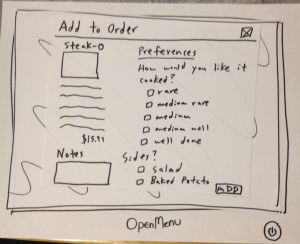 Add to Order
Steak-O
$15.99
Notes
Preferences
How would you like it
cooked?
rare
medium rare
medium
medium well
well done
Sides?
salad
Baked Potato
ADD
OpenMenu